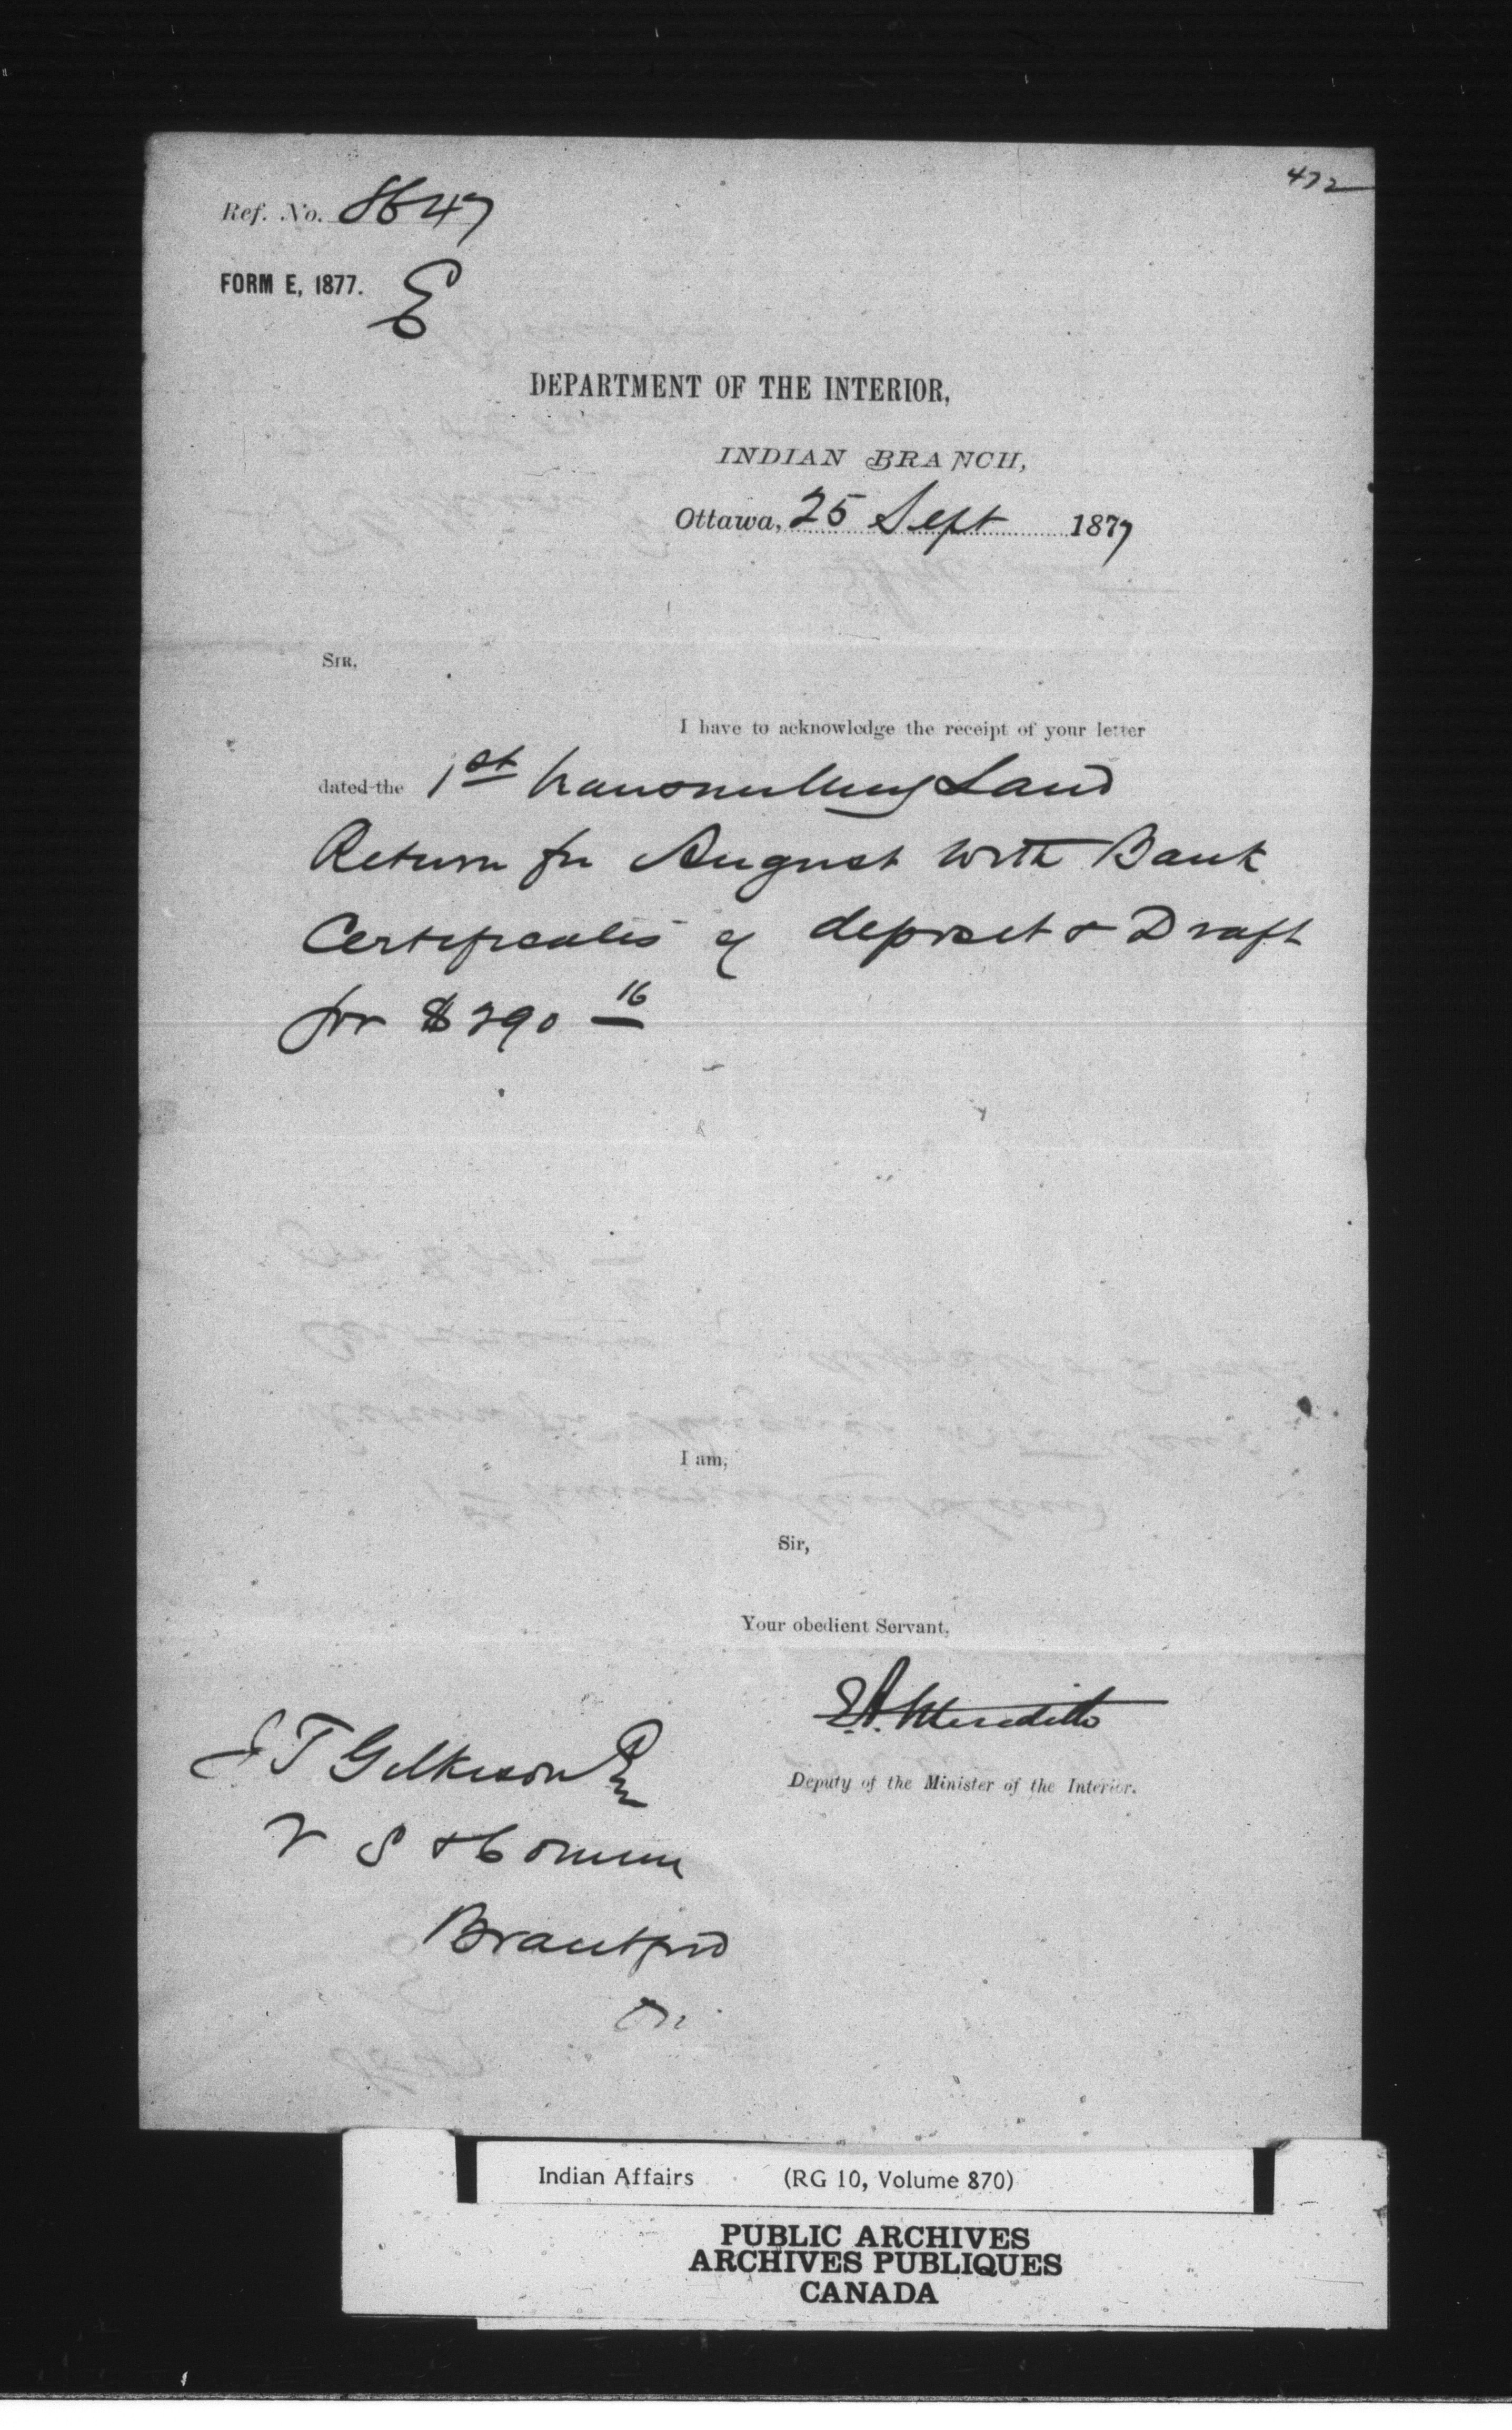 472
Ref. No. 8647
FORM E, 1877.
E
DEPARTMENT OF THE INTERIOR,
INDIAN BRANCH,
Ottawa, 25 Sept 1877
SIR,
I have to acknowledge the receipt of your letter
dated the 1st transmitting Land
Return for August with Bank
Certificates of deposit & Draft
for $290 16
I am,
Sir,
Your obedient Servant,
E.A. Meredith
Deputy of the Minister of the Interior.
J T Gilkison Esq
V S & Comm
Brantford
On
Indian Affairs (RG 10, Volume 870)
PUBLIC ARCHIVES
ARCHIVES PUBLIQUES
CANADA